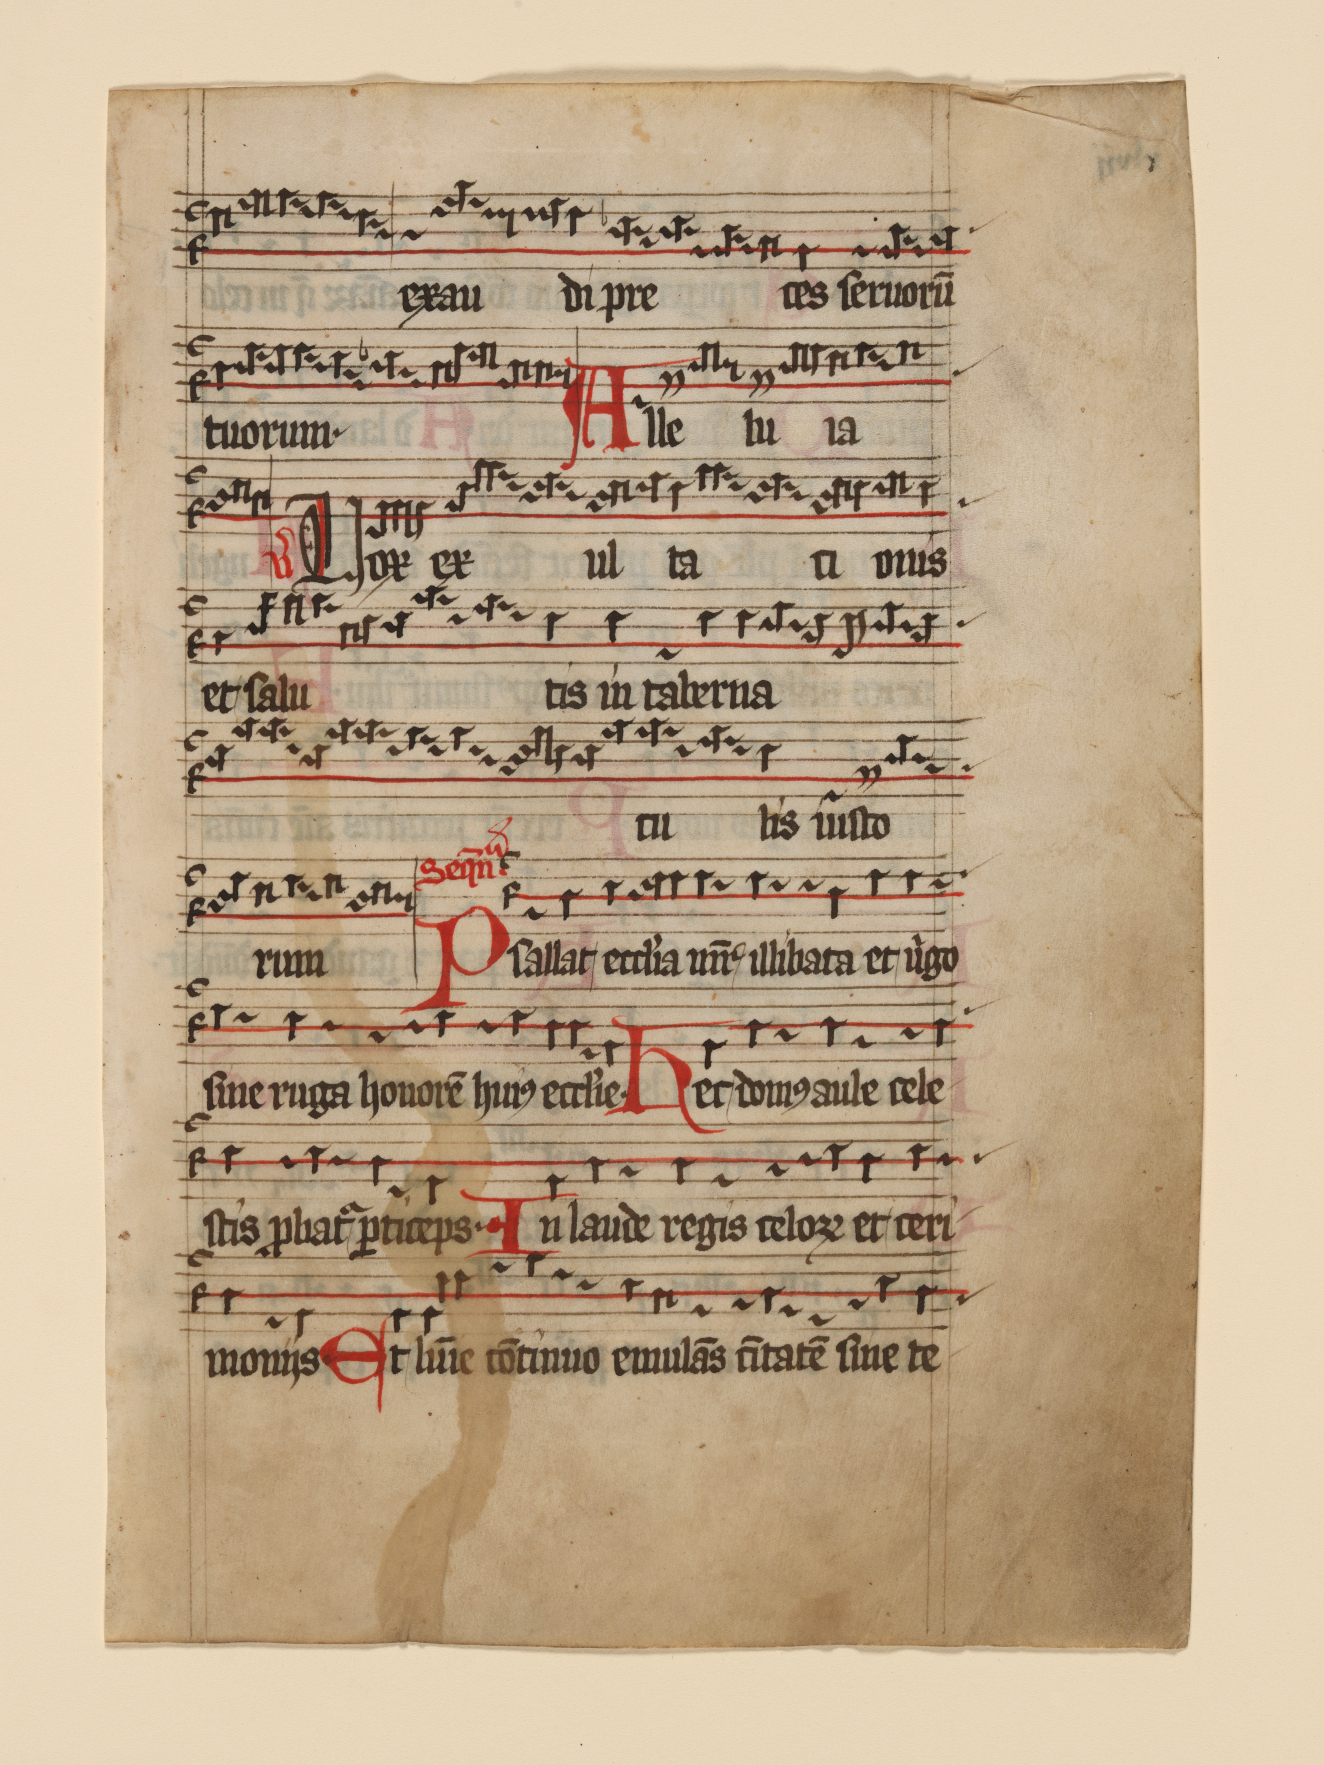 exau di pre ces seruorū
tuorum· Alle lu ia
V Vox ex ul ta ti onis
et salu tis in taberna
cu lis iusto
Seqn̄
rum Psallat eccl'ia mr̄ illibata et ỽgo
sine ruga honorē huiꝰ eccl'ie· hec domꝰ aule cele
stis ꝓbat² ꝑticeps· In laude regis celoꝝ et ceri
monijs· Et lumīe cōtinuo emulās ciuitatē sine te